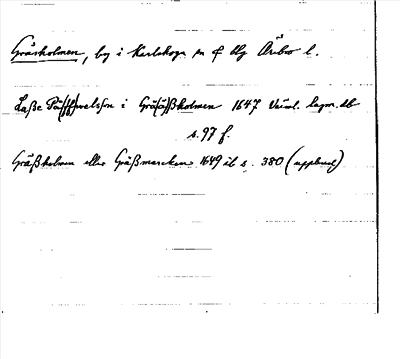 Gräsholmen, by i Karlskoga sn o bg Örebro l.
Laße i Gräßholmen 1647 Värml. lagm. db
s. 97 f.
Gräßholmen eller Gräßmarcken 1649 ib s. 380 (uppbud)